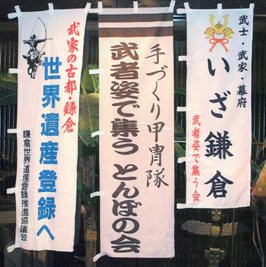 武士・武家・幕府
いざ鎌倉
武者姿で集う会
手づくり甲冑隊
武者姿で集う とんぼの会
武家の古都・鎌倉
世界遺産登録へ
鎌倉世界遺産登録推進協議会